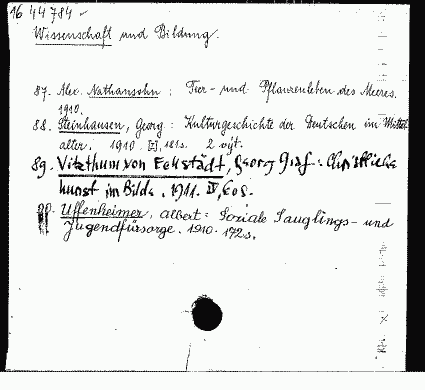 16 44784
Wissenschaft und Bildung.
87. Alex. Nathansohn : Tier- und Pflanzenleben des Meeres.
1910.
88. Steinhausen, Georg: Kulturgeschichte der Deutschen im Mittel
alter. 1910. 181 s. 2 ojt.
89. Vitzthum von Eckstädt, Georg Graf: Christliche
kunst im Bilde. 1911. IV, 60 s.
90. Uffenheimer, Albert: Soziale Säuglings- und
Jugendfürsorge. 1910. 172 s.